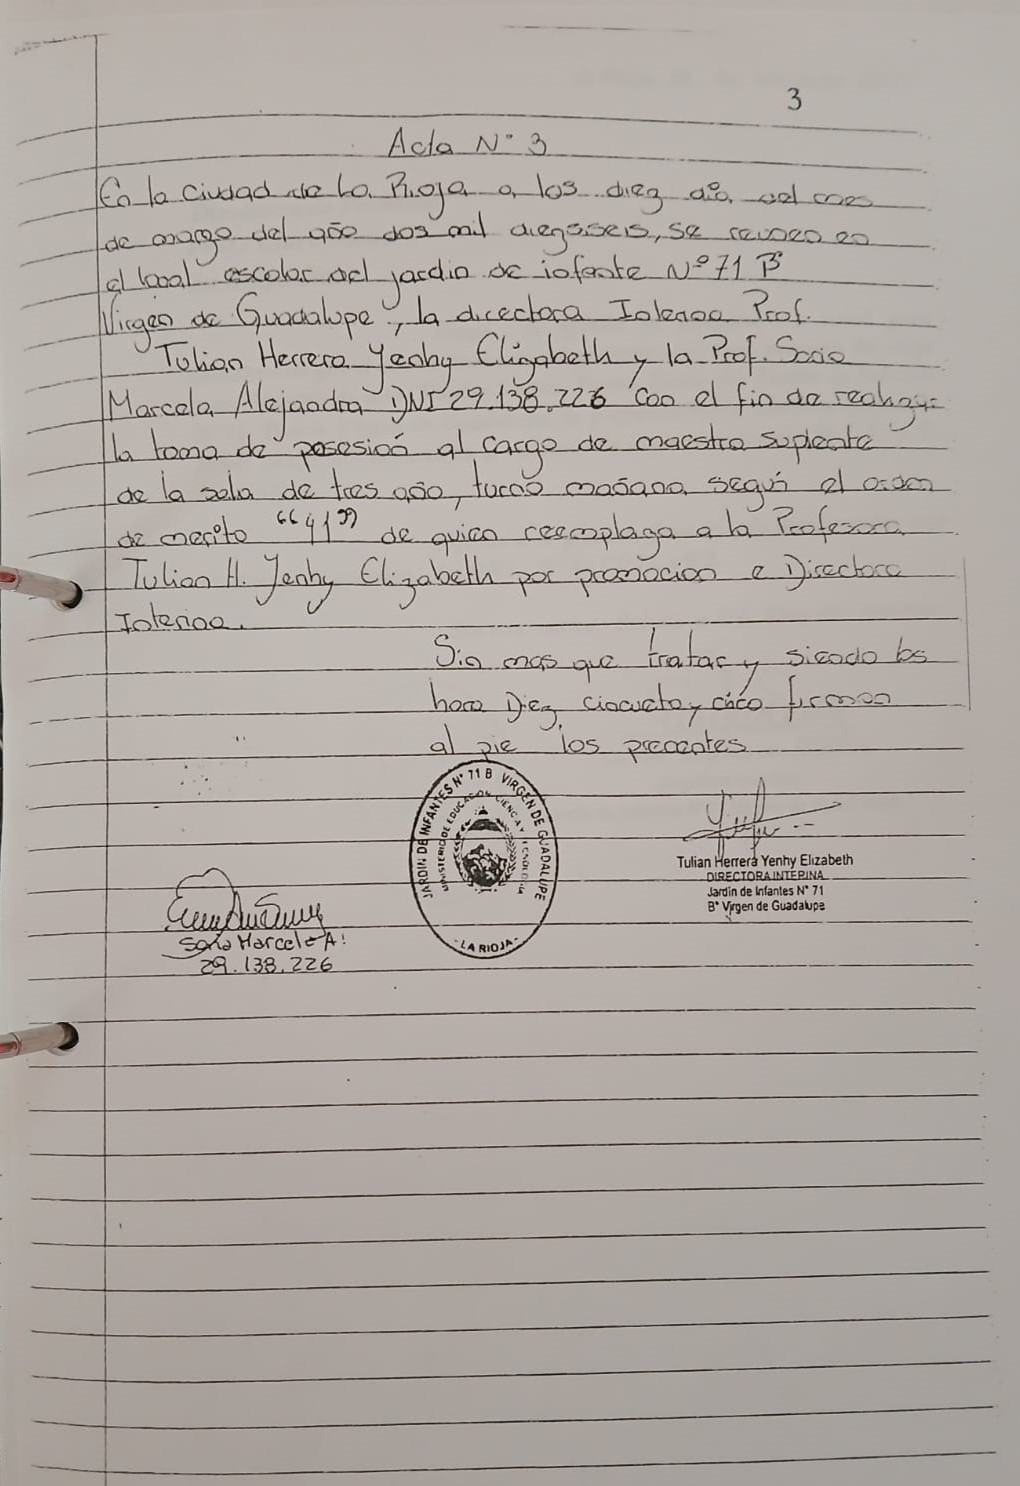 3
Acta N° 3
En la ciudad de La Rioja a los diez día del mes
de marzo del año dos mil diezseseis, se reunen en
el local escolar del jardin de infante Nº 71 Bº
Virgen de Guadalupe, la directora Interina Prof.
Tulian Herrera Yenhy Elizabeth y la Prof. Soria
Marcela Alejandra DNI 29.138.226 con el fin de realizar
la toma de posesión al cargo de maestra suplente
de la sala de tres año, turno mañana según el orden
de merito “41” de quien reemplaza a la Profesora
Tulian H. Yenhy Elizabeth por promocion a Directora
Interina.
Sin mas que tratar y siendo las
hora Diez, cincueta y cinco firman
al pie los precentes
JARDIN DE INFANTES N° 71 B VIRGEN DE GUADALUPE
MINISTERIO DE EDUCACION CIENCIA Y TECNOLOGIA
- LA RIOJA -
Tulian Herrera Yenhy Elizabeth
DIRECTORA INTERINA
Jardin de Infantes N° 71
B° Virgen de Guadalupe
Soria Marcela A.
29.138.226